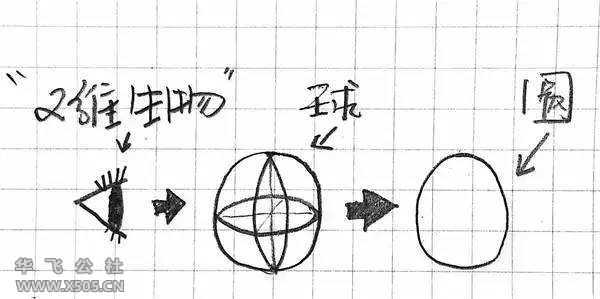 “2维生物”
球
圆
华飞公社
WWW.X505.CN